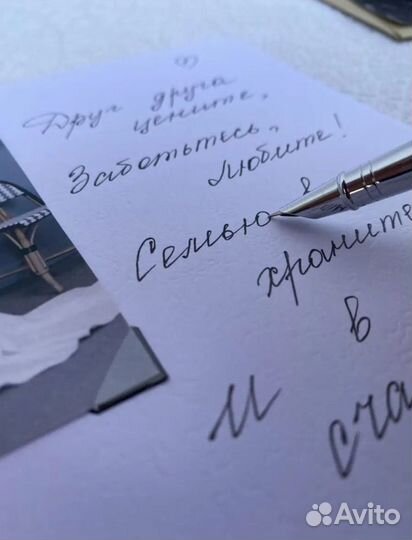 Друг друга
цените,
Заботьтесь,
любите!
Семью в
храните
И в
сча
Avito